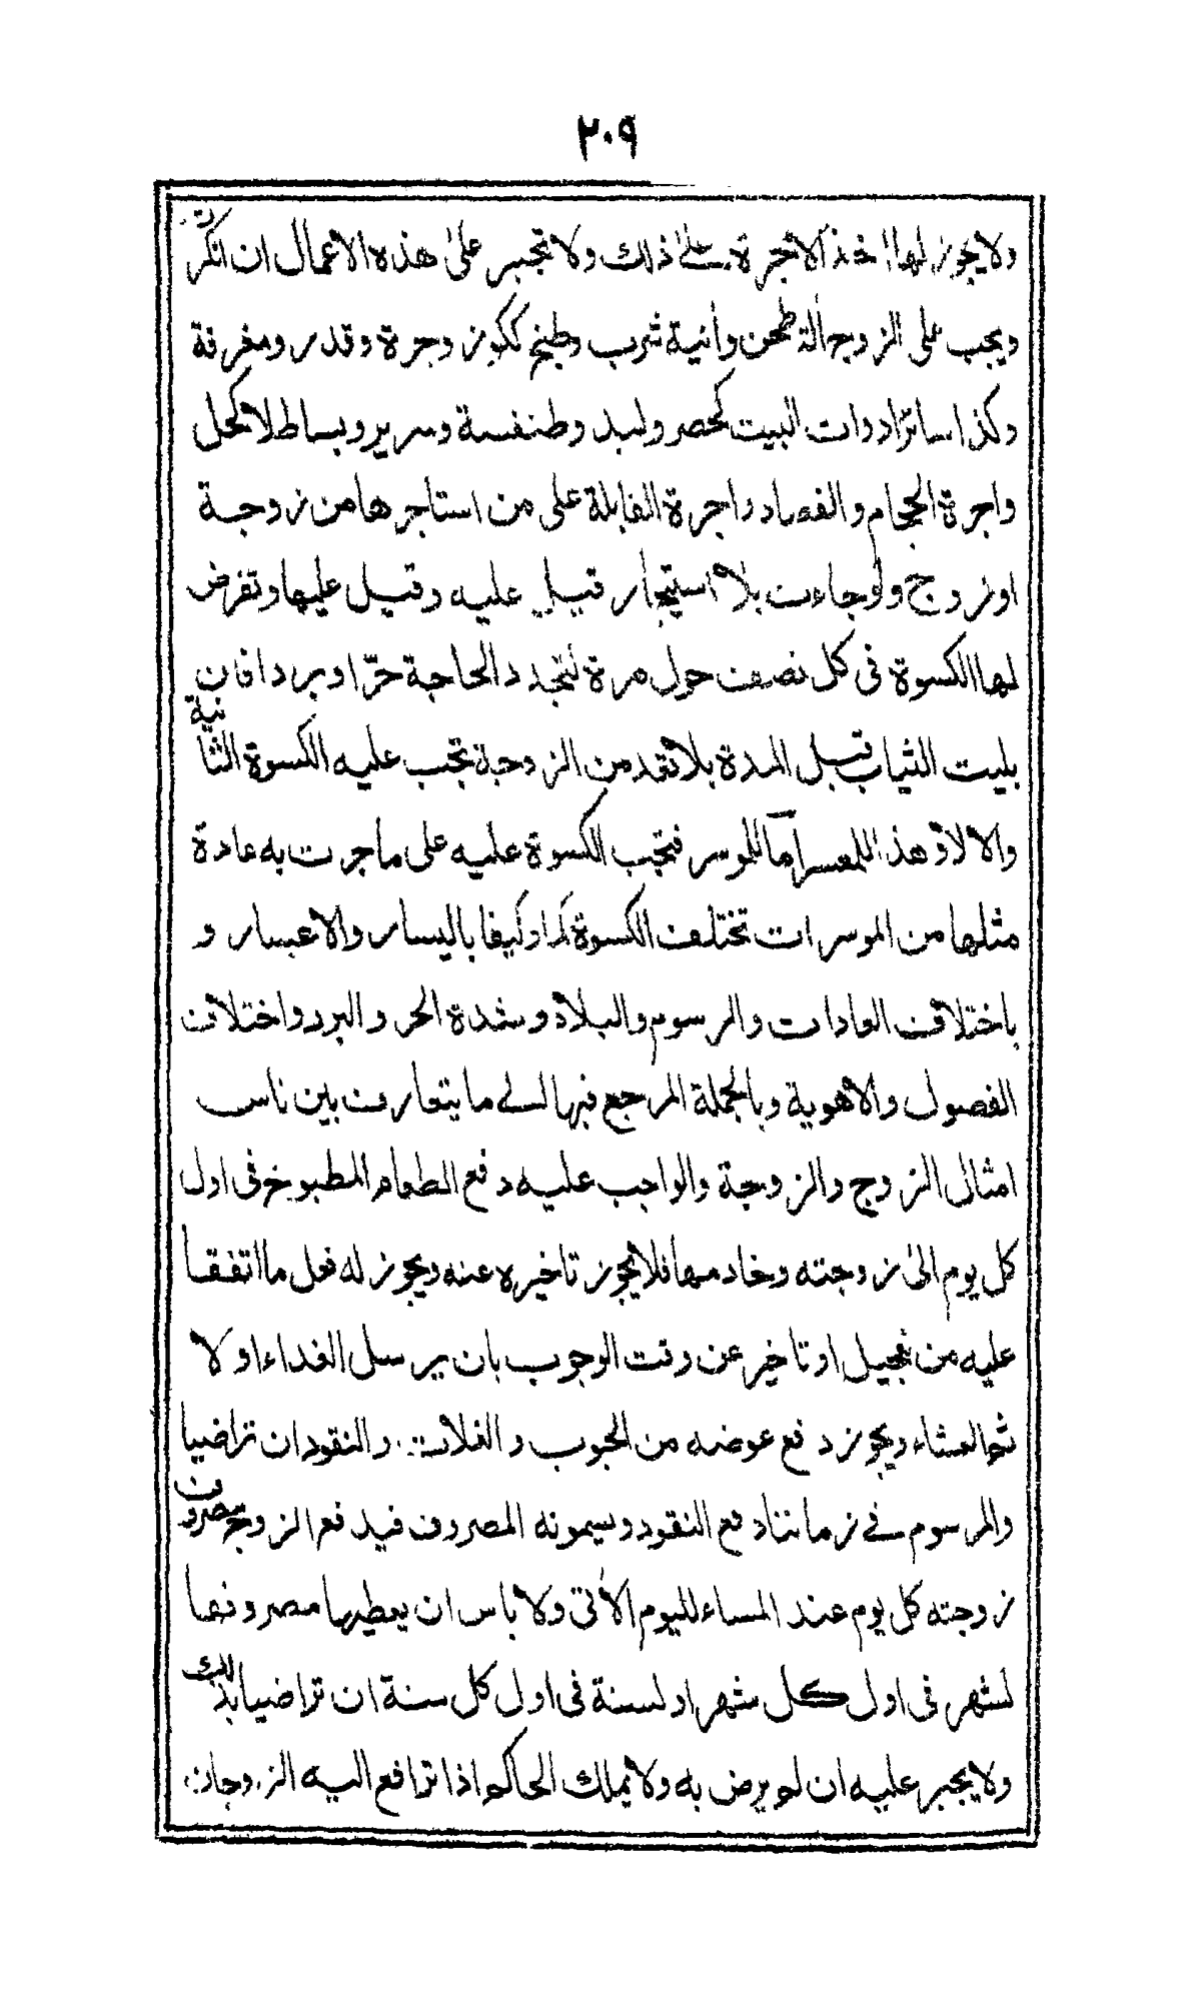 ٢٠٩
ولا يجوز لها اخذ الاجرة على ذلك ولا تجبر على هذه الاعمال ان انكرت
ويجب على الزوج الة طحن وانية شرب وطبخ ككوز وجرة وقدر ومغرفة
وكذا سائر ادوات البيت كحصر ولبد وطنفسة وسرير وبساط لا كحل
واجرة الحجام والفصاد واجرة القابلة على من استاجرها من زوجة
او زوج ولو جاءت بلا استيجار قيل عليه وقيل عليها وتفرض
لها الكسوة فى كل نصف حول مرة لتجدد الحاجة حرّا وبردا فان
بليت الثياب قبل المدة بلا تعمد من الزوجة تجب عليه الكسوة الثانية
والا لا وهذا للمعسر اما للموسر فتجب الكسوة عليه على ما جرت به عادة
مثلها من الموسرات تختلف الكسوة كما وكيفا باليسار والاعسار و
باختلاف العادات والرسوم والبلاد وشدة الحر والبرد واختلاف
الفصول والاهوية وبالجملة المرجع فيها الى ما يتعارف بين ناس
امثال الزوج والزوجة والواجب عليه دفع الطعام المطبوخ فى اول
كل يوم الى زوجته وخادمها فلا يجوز تاخيره عنه ويجوز له فعل ما اتفقا
عليه من تعجيل او تاخير عن وقت الوجوب بان يرسل الغداء اولا
ثم العشاء ويجوز دفع عوضه من الحبوب والغلات والنقود ان تراضيا
والمرسوم فى زماننا دفع النقود ويسمونه المصروف فيدفع الزوج مصروف
زوجته كل يوم عند المساء لليوم الاتى ولا باس ان يعطيها مصروفها
لشهر فى اول كل شهر او لسنة فى اول كل سنة ان تراضيا بذلك
ولا يجبر عليه ان لم يرض به ولا يملك الحاكم اذا ترافع اليه الزوجان